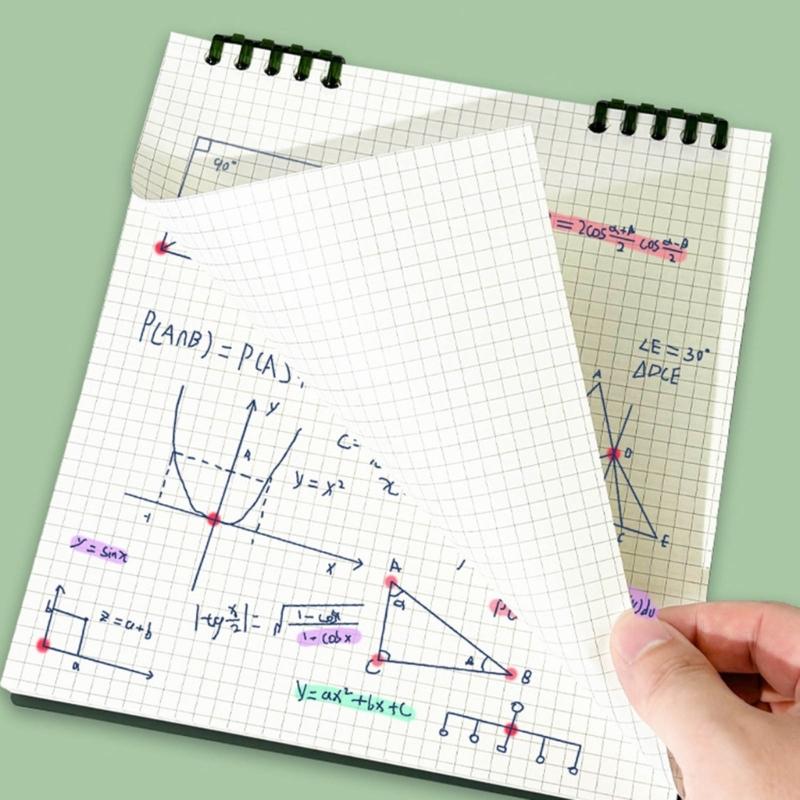 90°
= 2cos (α+β)/2 cos (α-β)/2
P(A∩B) = P(A)
∠E = 30°
△DCE
A
D
C
E
y
C =
x
y = x²
-1
x
y = sinx
b
z = a+b
a
|tg x/2| = √
1-cosx
1-cosx
A
α
C
B
y = ax²+bx+c
)du